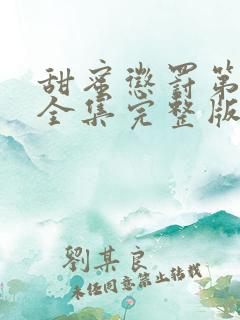 甜蜜懲罰第
全集完整版
劉某良
未经同意禁止转载